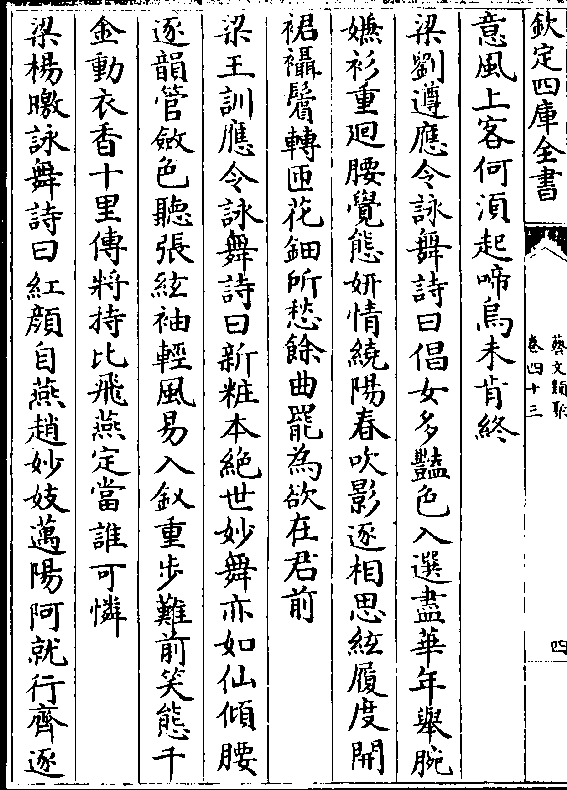 欽定四庫全書
藝文類聚
卷四十三
四
意風上客何須起啼烏未肯終
梁劉遵應令詠舞詩曰倡女多豔色入選盡華年舉腕
嫌衫重廻腰覺態妍情繞陽春吹影逐相思絃履度開
裙襵鬟轉匝花鈿所愁餘曲罷為欲在君前
梁王訓應令詠舞詩曰新粧本絶世妙舞亦如仙傾腰
逐韻管斂色聽張絃袖輕風易入釵重步難前笑態千
金動衣香十里傳將持比飛燕定當誰可憐
梁楊曒詠舞詩曰紅顔自燕趙妙妓邁陽阿就行齊逐